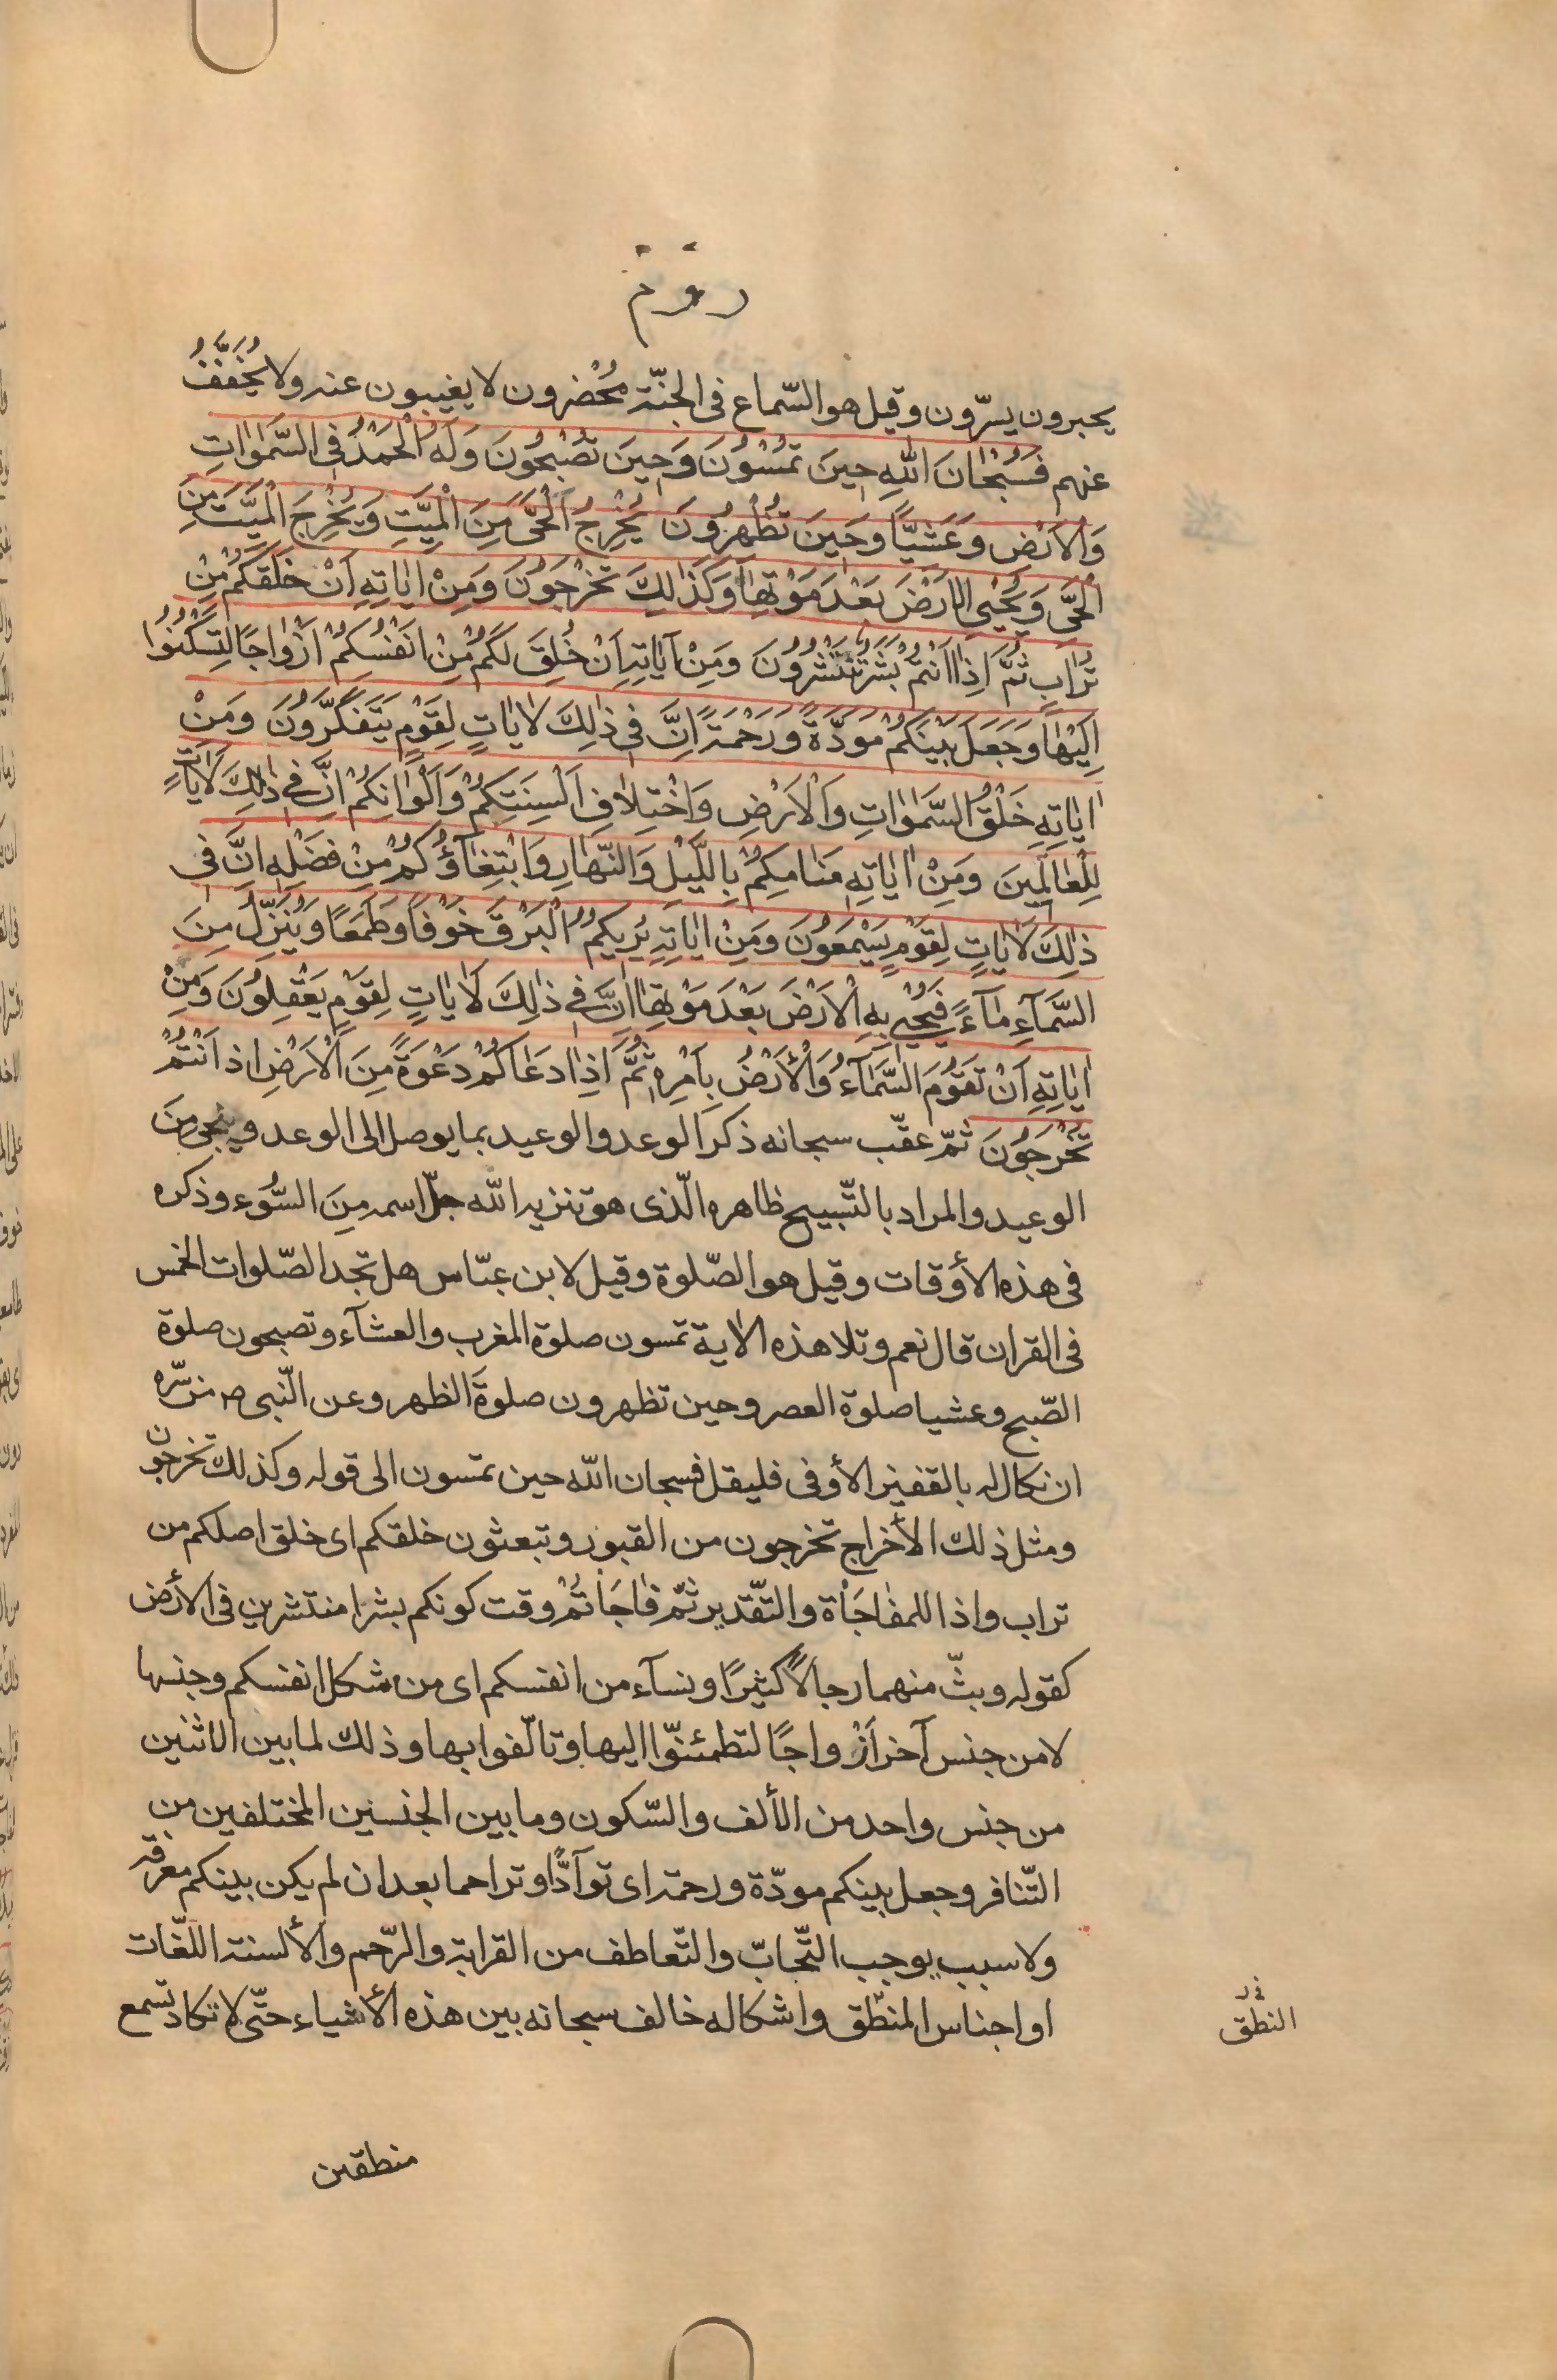 روم
يحبرون يسرّون وقيل هو السّماع فى الجنّة مُحْضرون لا يغيبون عنه ولا يُخَفَّفُ
عنهم فَسُبْحٰانَ اللهِ حِينَ تُمْسُونَ وَحِينَ تُصْبِحُونَ وَلَهُ الْحَمْدُ فِى السَّمٰوٰاتِ
وَالْاَرْضِ وَعَشِيًّا وَحِينَ تُظْهِرُونَ يُخْرِجُ الْحَىَّ مِنَ الْمَيِّتِ وَيُخْرِجُ الْمَيِّتَ مِنَ
الْحَىِّ وَيُحْيِى الْاَرْضَ بَعْدَ مَوْتِهٰا وَكَذٰلِكَ تُخْرَجُونَ وَمِنْ اٰيٰاتِهِ اَنْ خَلَقَكُمْ مِنْ
تُرٰابٍ ثُمَّ اِذٰا اَنْتُمْ بَشَرٌ تَنْتَشِرُونَ وَمِنْ اٰيٰاتِهِ اَنْ خَلَقَ لَكُمْ مِنْ اَنْفُسِكُمْ اَزْوٰاجًا لِتَسْكُنُوا
اِلَيْهٰا وَجَعَلَ بَيْنَكُمْ مَوَدَّةً وَرَحْمَةً اِنَّ فِى ذٰلِكَ لَاٰيٰاتٍ لِقَوْمٍ يَتَفَكَّرُونَ وَمِنْ
اٰيٰاتِهِ خَلْقُ السَّمٰوٰاتِ وَالْاَرْضِ وَاخْتِلٰافِ اَلْسِنَتِكُمْ وَاَلْوٰانِكُمْ اِنَّ فِى ذٰلِكَ لَاٰيٰاتٍ
لِلْعٰالَمِينَ وَمِنْ اٰيٰاتِهِ مَنٰامُكُمْ بِاللَّيْلِ وَالنَّهٰارِ وَابْتِغٰاؤُكُمْ مِنْ فَضْلِهِ اِنَّ فِى
ذٰلِكَ لَاٰيٰاتٍ لِقَوْمٍ يَسْمَعُونَ وَمِنْ اٰيٰاتِهِ يُرِيكُمُ الْبَرْقَ خَوْفًا وَطَمَعًا وَيُنَزِّلُ مِنَ
السَّمٰآءِ مٰآءً فَيُحْيِى بِهِ الْاَرْضَ بَعْدَ مَوْتِهٰا اِنَّ فِى ذٰلِكَ لَاٰيٰاتٍ لِقَوْمٍ يَعْقِلُونَ وَمِنْ
اٰيٰاتِهِ اَنْ تَقُومَ السَّمٰآءُ وَالْاَرْضُ بِاَمْرِهِ ثُمَّ اِذٰا دَعٰاكُمْ دَعْوَةً مِنَ الْاَرْضِ اِذٰ اَنْتُمْ
تُخْرَجُونَ ثمّ عقّب سبحانه ذكر الوعد والوعيد بما يوصل الى الوعد وينجى مِنَ
الوعيد والمراد بالتّسبيح ظاهره الّذى هو تنزيه الله جلّ اسمه مِنَ السُّوء وذكره
فى هذه الأوقات وقيل هو الصّلوة وقيل لابن عبّاس هل تجد الصّلوات الخمس
فى القران قال نعم وتلا هذه الاية تمسون صلوة المغرب والعشآء وتصبحون صلوة
الصّبح وعشيا صلوة العصر وحين تظهرون صلوةَ الظهر وعن النّبى ص من سّره
ان يكال له بالقفيز الأوفى فليقل فسبحان الله حين تمسون الى قوله وكذلك تخرجون
ومثل ذلك الأخراج تخرجون من القبور وتبعثون خلقكم اى خلق اصلكم من
تراب واذا للمفاجَأة والتّقدير ثمّ فٰاجَاْتُمْ وقت كونكم بشرا منتشرين فى الأرض
كقوله وبثّ منهما رجالًا كثيرًا ونسآء من انفسكم اى من شكل انفسكم وجنسها
لا من جنس آخر اَزْواجًا لتطمئنّوا اليها وتالّفوا بها وذلك لما بين الاثنين
من جنس واحد من الألف والسّكون وما بين الجنسين المختلفين من
التّنافر وجعل بينكم مودّة ورحمة اى توآدًّا وتراحما بعد ان لم يكن بينكم معرفة
ولا سبب يوجب التّحابّ والتّعاطف من القرابة والرّحم والألسنة اللّغات
او اجناس المنطّق واشكاله خالف سبحانه بين هذه الأشياء حتّى لا تكاد تسمع
النطق
منطقين